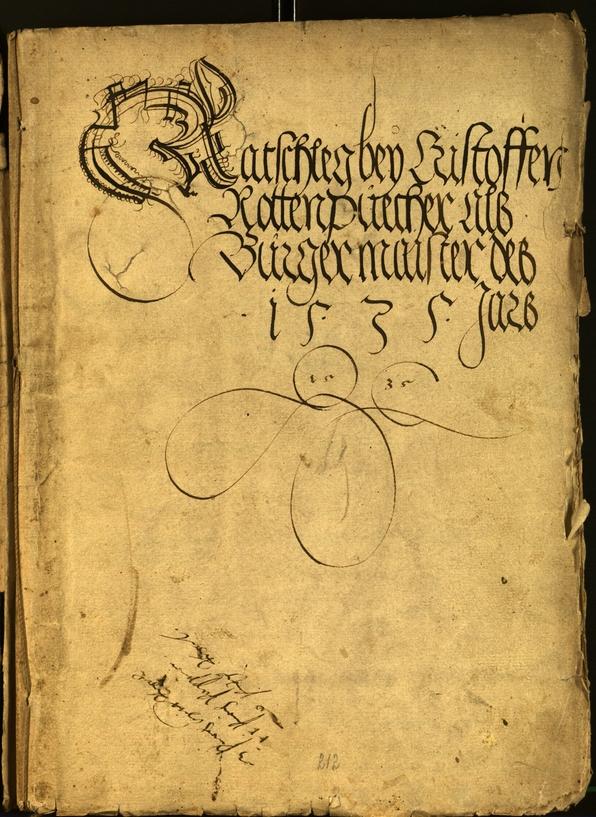 Ratschleg bey Cristoffen
Rottenpuecher als
Burgermaister des
1 5 3 5 Jars
15 35
212